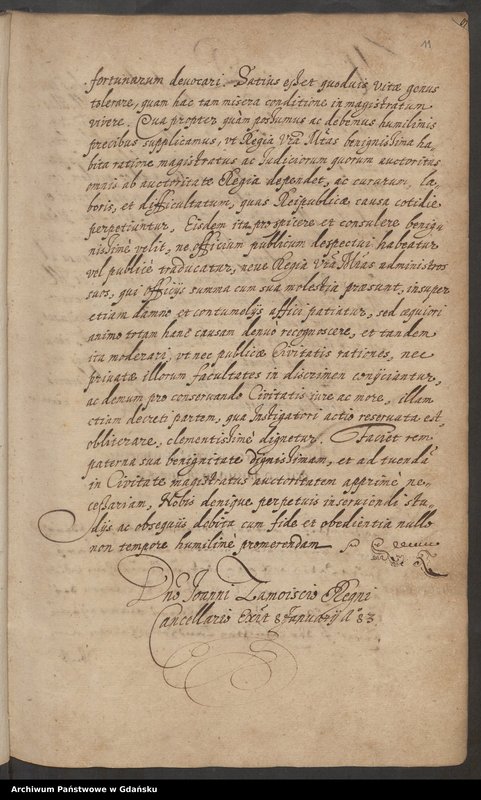 11
fortunarum devocari. Satius esset quoduis vitæ genus
tolerare, quam hac tam misera conditione in magistratum
vivere. Qua propter quàm possumus ac debemus humilimis
precibus supplicamus, vt Regia Vra Mtas benignissima ha-
bita ratione magistratus ac Iudiciorum quorum auctoritas
omnis ab auctoritate Regia dependet, ac curarum, la-
boris, et difficultatum, quas Reipublicæ causa cotidie
perpetiuntur, Eisdem ita prospicere et consulere benig
nissimè velit, ne officium publicum despectui habeatur
vel publicè traducatur, neue Regia Vra Mtas administros
suos, qui officijs summa cum sua molestia præsunt, insuper
etiam damno et contumelijs affici patiatur, sed æquiori
animo totam hanc causam denuò recognoscere, et tandem
ita moderari, vt nec publicæ Civitatis rationes, nec
privatæ illorum facultates in discrimen conijciantur,
ac demum pro conservando Civitatis iure ac more, illam
etiam decreti partem, qua Instigatori actio reservata est,
obliterare, clementissimè dignetur. Faciet rem
paterna sua benignitate dignissimam, et ad tuendã
in Civitate magistratus auctoritatem apprimè ne-
cessariam, Nobis denique perpetuis inserviendi stu-
dijs ac obsequijs debita cum fide et obedientia nullo
non tempore humilimè promerendam
Dno Ioanni Zamoiscio Regni
Cancellario Exñt 8 January Aº 83
Archiwum Państwowe w Gdańsku